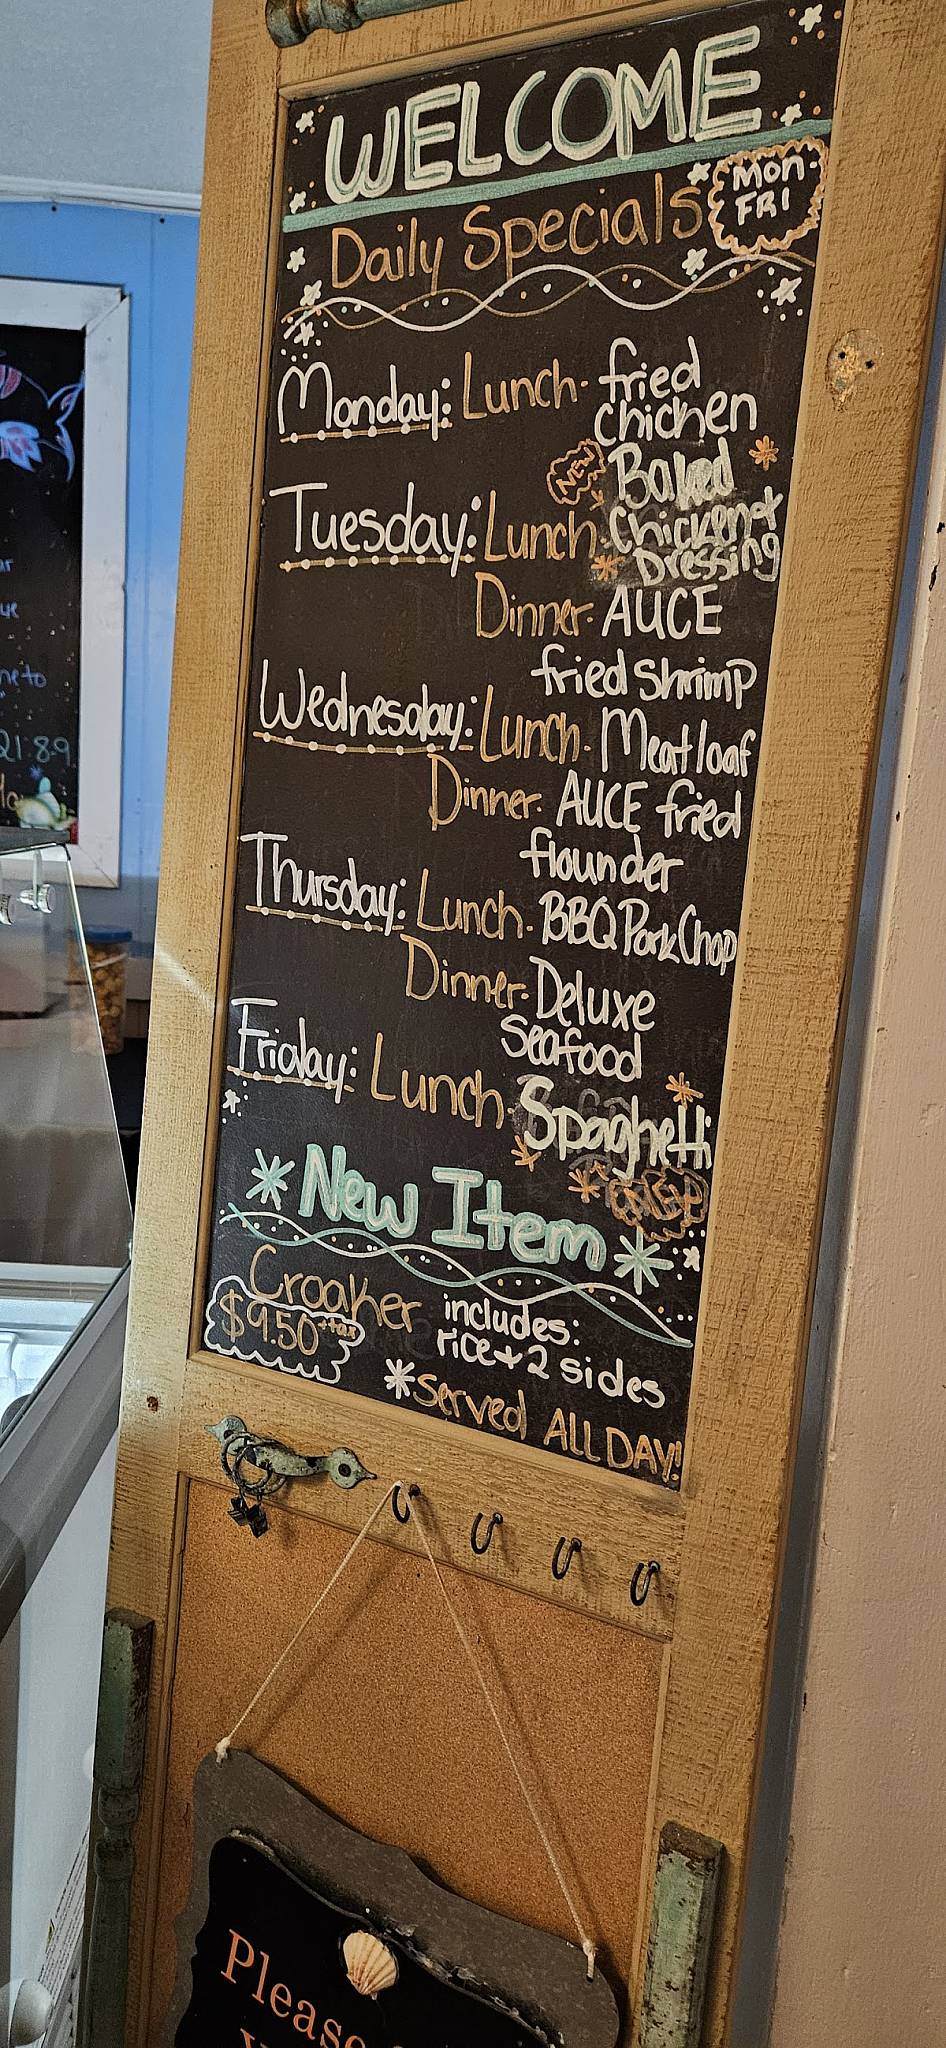 WELCOME
Daily Specials
MON-
FRI
Monday: Lunch- fried
chicken
NEW
Baked
Tuesday: Lunch- Chicken +
Dressing
Dinner- AUCE
fried shrimp
Wednesday: Lunch- Meatloaf
Dinner- AUCE fried
flounder
Thursday: Lunch- BBQ Pork Chop
Dinner- Deluxe
Seafood
Friday: Lunch- Spaghetti
New Item
Croaker
$9.50 +tax
includes:
rice + 2 sides
*served ALL DAY!
Please
ar
ue
ne to
21:8-9